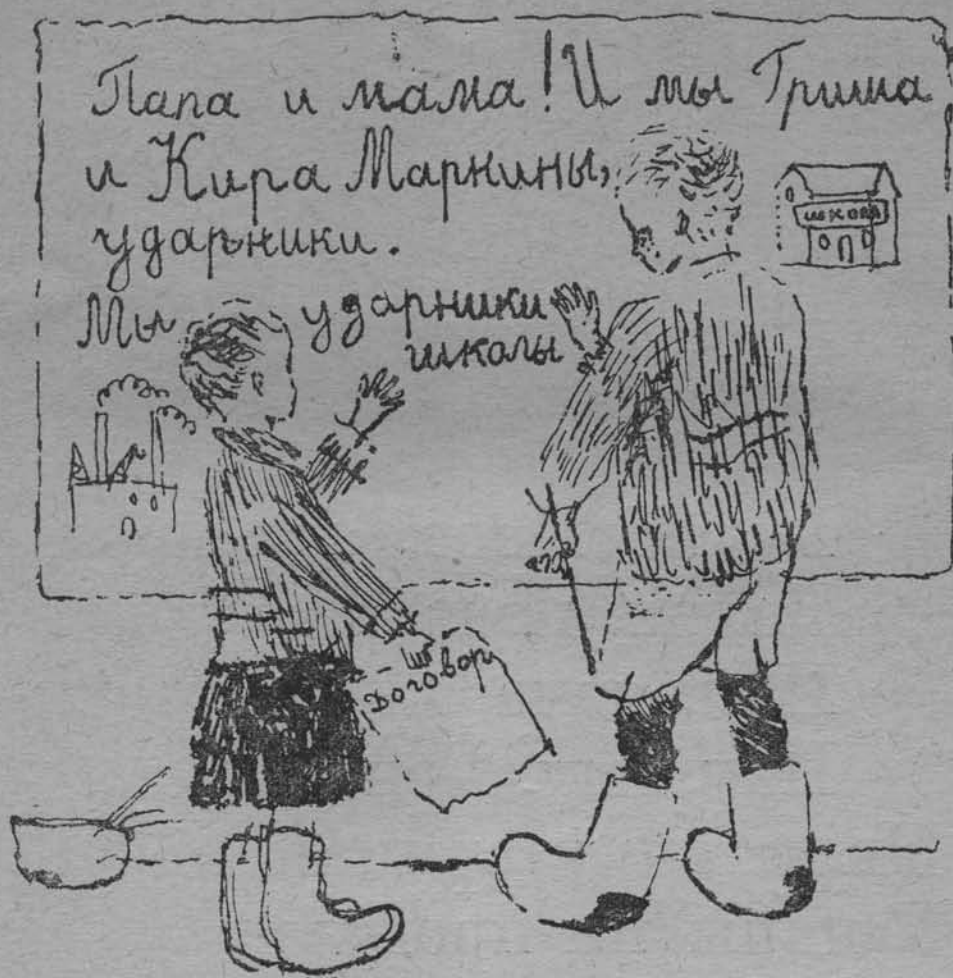 Папа и мама! И мы Гриша
и Кира Маркины,
ударники.
Мы ударники
школы
школа
Договор